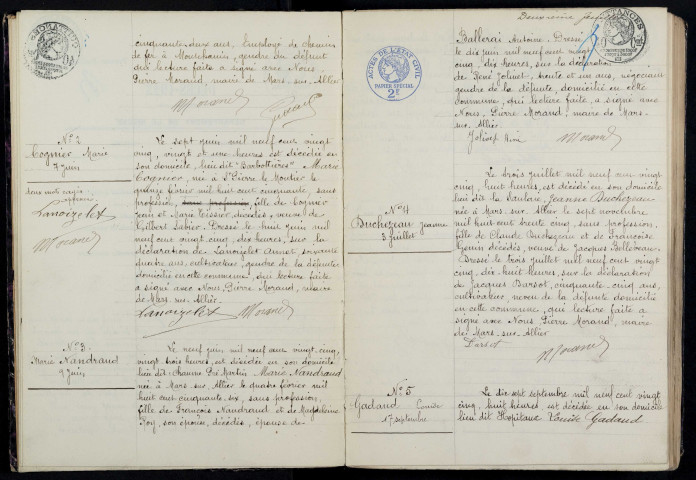 cinquante-deux ans, Employé de chemins
de fer à Montchanin, gendre du défunt
qui lecture faite a signé avec Nous
Pierre Morand, maire de Mars-sur-Allier
Morand
N° 2
Cognier Marie
7 juin
deux mots rayés
Lanoizelet
Morand
Le sept juin mil neuf cent vingt
cinq, vingt et une heures est décédée en
son domicile lieu dit "Barbottières" Marie
Cognier, née à St Pierre le Moutier le
quinze février mil huit cent cinquante, sans
profession, fille de Cognier
Jean et Marie Tissier décédés, veuve de
Gilbert Labier. Dressé le huit juin mil
neuf cent vingt cinq, dix heures, sur la
déclaration de Lanoizelet Annet soixante
quatre ans, cultivateur, gendre de la défunte
domicilié en cette commune, qui lecture faite
a signé avec Nous, Pierre Morand, maire
de Mars-sur-Allier
Lanoizelet Morand
N° 3
Marie Nandraud
9 juin
Le neuf juin mil neuf cent vingt cinq,
vingt trois heures, est décédée en son domicile
lieu dit: Chaume Pré Martin Marie Nandraud
née à Mars-sur-Allier le quatre février mil
huit cent cinquante-six, sans profession,
fille de François Nandraud et de Magdeleine
Roy, son époux, décédés, épouse de
Deuxième feuillet
Ballerai Antoine. Dressé
le dix juin mil neuf cent vingt
cinq, dix heures, sur la déclaration
de René Jolivet, trente et un ans, négociant
gendre de la défunte, domicilié en cette
commune, qui lecture faite, a signé avec
Nous, Pierre Morand, maire de Mars-
sur-Allier
Jolivet René Morand
ACTES DE L'ETAT CIVIL
PAPIER SPECIAL
2F
N° 4
Buchezeau Jeanne
3 juillet
Le trois juillet mil neuf cent vingt
cinq, huit heures, est décédée en son domicile
lieu dit la Vaulaie, Jeanne Buchezeau
née à Mars-sur-Allier le sept novembre
mil huit cent trente cinq, sans profession,
fille de Claude Buchezeau et de Françoise
Genin décédés, veuve de Jacques Balleveau.
Dressé le trois juillet mil neuf cent vingt
cinq, dix-huit heures, sur la déclaration
de Jacques Barsot, cinquante-cinq ans,
cultivateur, neveu de la défunte domicilié
en cette commune, qui lecture faite a
signé avec Nous Pierre Morand, maire
de Mars-sur-Allier
Barsot Morand
N° 5
Gadaud Louise
17 septembre
Le dix sept septembre mil neuf cent vingt
cinq, huit heures, est décédée en son domicile
lieu dit Hopitaux Louise Gadaud